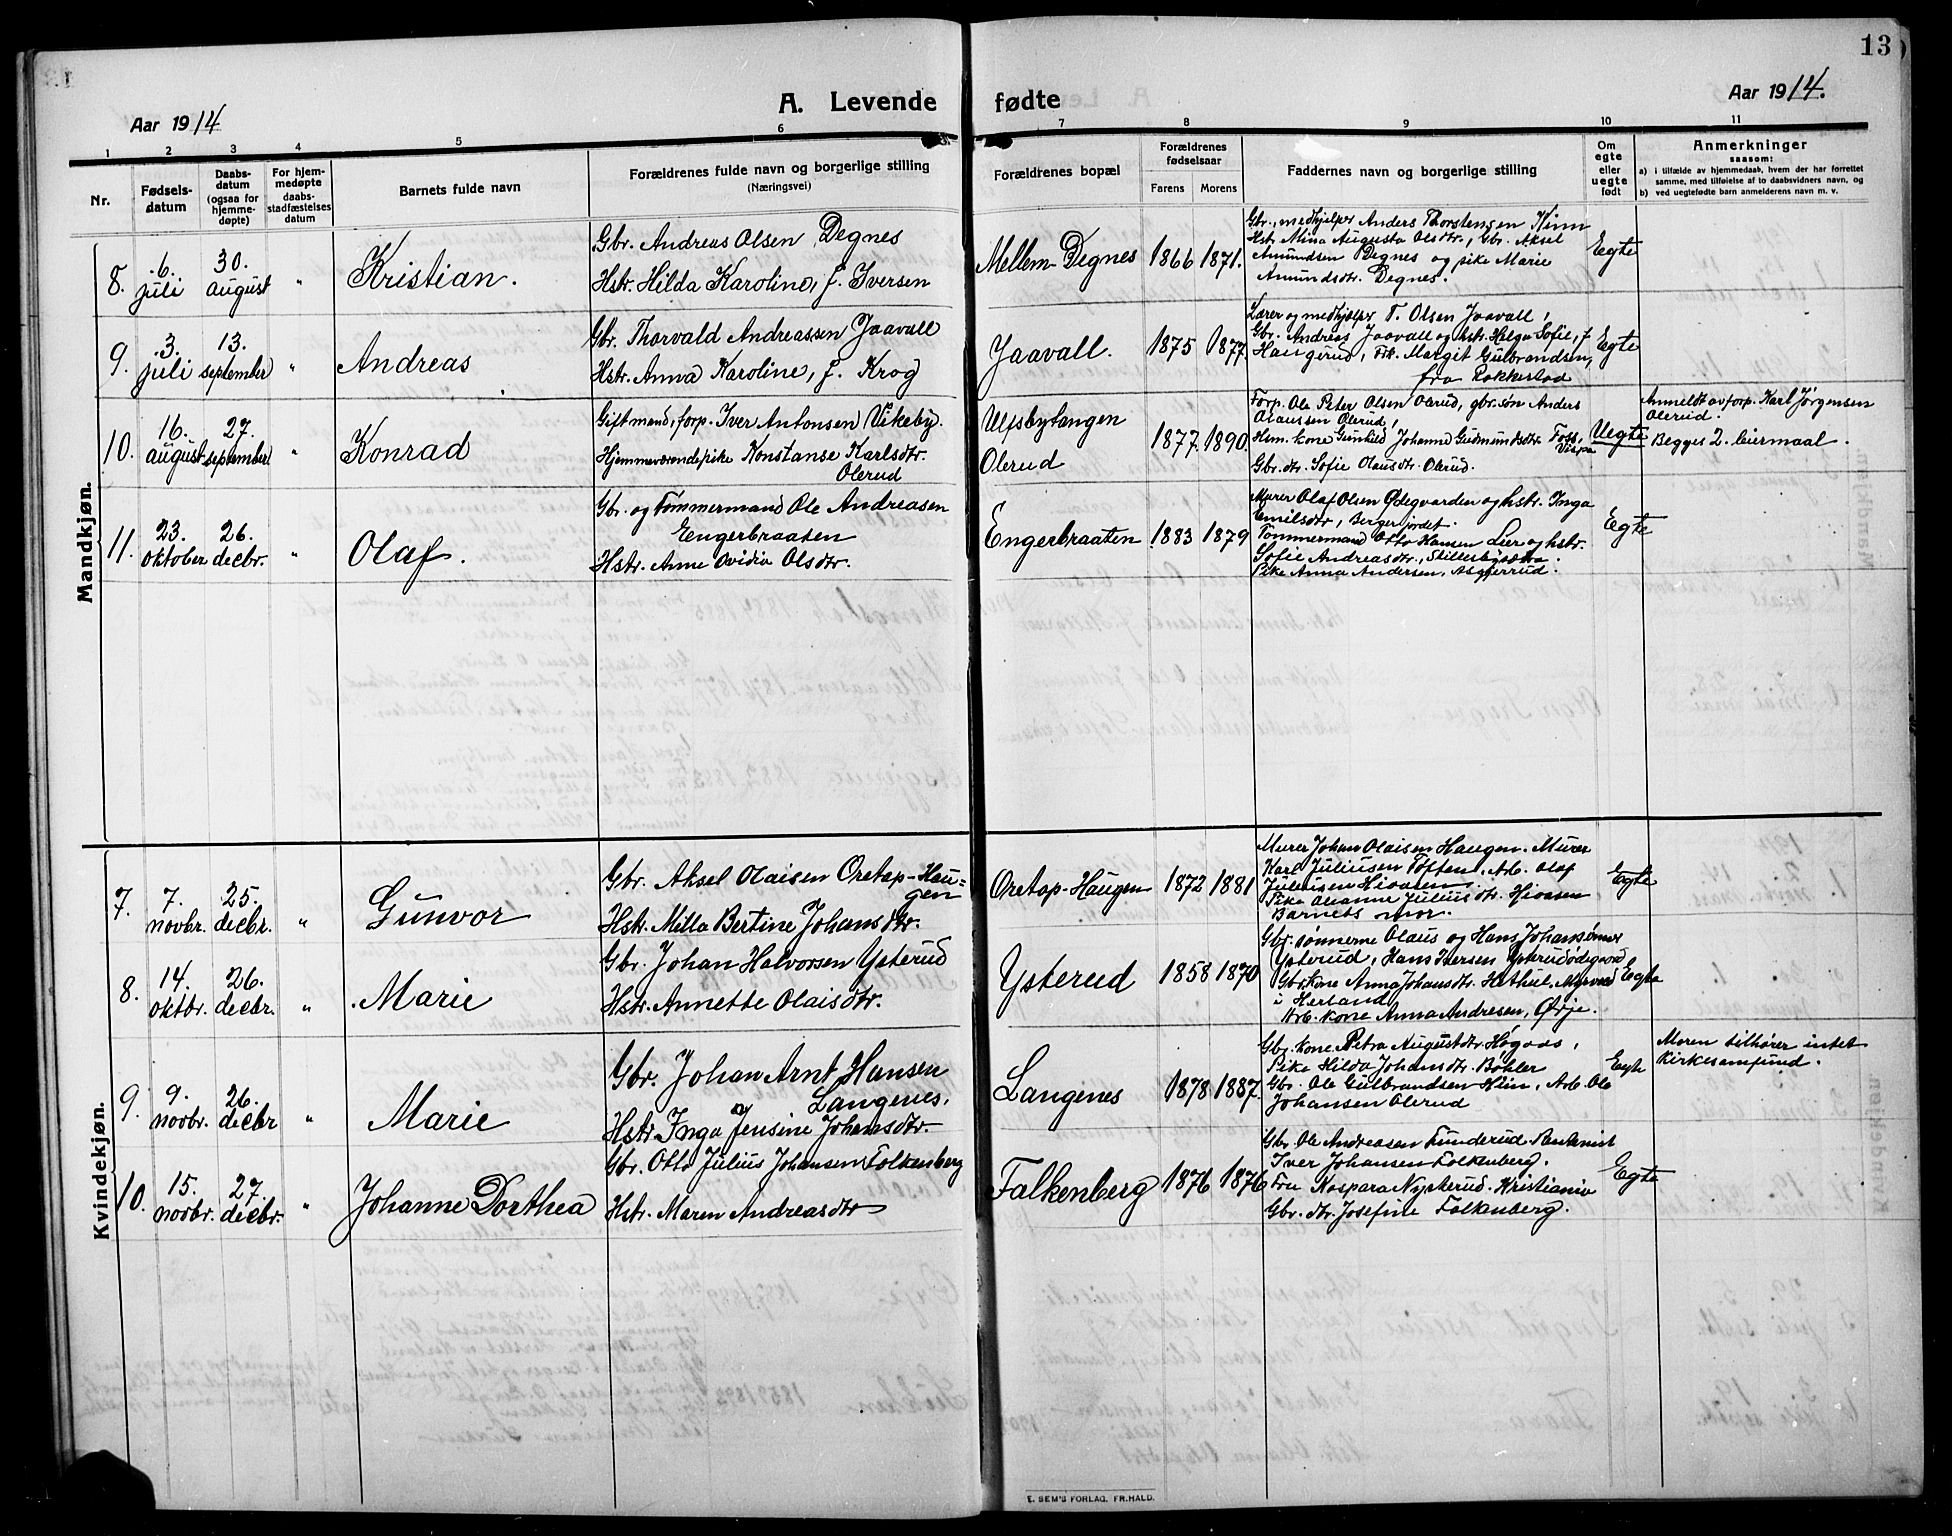 13
A. Levende fødte
Aar 1914
Aar 1914.
1
2
3
4
5
6
7
8
9
10
11
Nr.
Fødsels-
datum
Daabs-
datum
(ogsaa for
hjemme-
døpte)
For hjem-
medøpte
daabs-
stadfæstelses
datum
Barnets fulde navn
Forældrenes fulde navn og borgerlige stilling
(Næringsvei)
Forældrenes bopæl
Forældrenes
fødselsaar
Farens
Morens
Faddernes navn og borgerlige stilling
Om
egte
eller
uegte
født
Anmerkninger
saasom:
a) i tilfælde av hjemmedaab, hvem der har forrettet
samme, med tilføielse af to daabsvidners navn, og
b) ved uegtefødte barn anmelderens navn m. v.
Mandkjøn.
8.
6.
juli
30.
august
"
Kristian.
Gbr. Andreas Olsen Degnes
Hstr. Hilda Karoline, f. Iversen
Mellem-Degnes
1866
1871.
Gbr., medhjelper Anders Thorstensen Kinn
Hstr Mina Augusta Olsdtr., Gbr. Aksel
Amundsen Degnes og pike Marie
Amundsdtr. Degnes.
Egte
9.
3.
juli
13.
september
"
Andreas
Gbr. Thorvald Andreassen Jaavall
Hstr. Anna Karoline, f. Krog
Jaavall.
1875
1877
Lærer og medhjelper T. Olsen Jaavall,
Gbr. Andreas Jaavall og hstr. Helga Sofie, f
Haugerud, Frk. Margit Gulbrandsen,
fra Rakkestad
Egte
10.
16.
august
27.
september
"
Konrad
Gift mand, forp. Iver Antonsen Vikeby.
Hjemmeværende pike Konstanse Karlsdtr.
Olerud
Ulfsbytangen
Olerud
1877.
1890.
Forp. Ole Peter Olsen Olerud, gbr. søn Anders
Olaussen Olerud,
Hsm. kone Gunhild Johanne Gudmundsdtr. Foss,
Gbr. dtr. Sofie Olausdtr. Olerud.
Uegte
Anmeldt av forp. Karl Jørgensen
Olerud.
Begges 2. leiermaal.
11.
23.
oktober
26.
decbr.
"
Olaf.
Gbr. og Tømmermand Ole Andreasen
Engerbraaten
Hstr. Anne Ovidia Olsdtr.
Engerbraaten
1883
1879
Murer Olaf Olsen Ødegaarden og hstr. Inga
Emilsdtr, Bergerjordet.
Tømmermand Otto Hansen Lier og hstr.
Sofie Andreasdtr.,
Pike Anna Andersen, Asgjerrud.
Egte
Kvindekjøn.
7.
7.
novbr.
25.
decbr.
"
Gunvor
Gbr. Aksel Olaisen Oretop-Hau=
gen
Hstr. Milla Bertine Johansdtr.
Oretop-Haugen
1872
1881
Murer Johan Olaisen Haugen. Murer
Karl Juliusen Toften. Arb. Olaf
Juliusen Hioasen.
Pike Oleanne Juliusdtr. Hioasen
Barnets mor.
Egte
8.
14.
oktbr.
26.
decbr.
"
Marie
Gbr. Johan Halvorsen Ysterud
Hstr. Annette Olaisdtr.
Ysterud
1858
1870
Gbr. sønnerne Olaus og Hans Johansønner
Ysterud, Hans Iversen Ysterudødegård
Gbr. kone Anna Johansdtr.
i Herland
Arb. kone Anna Andresen, Ørje.
Egte
9.
9.
novbr.
26.
decbr
"
Marie
Gbr. Johan Arnt Hansen
Langenes.
Hstr. Inga Jensine Johansdtr.
Langenes
1878
1887.
Gbr. kone Petra Augustdtr. Høgaas,
Pike Hilda Johansdtr. Bøhler
Gbr. Ole Gulbrandsen Hlin, Arb. Ole
Johansen Olerud
Egte
Moren tilhører intet
kirkesamfund.
10.
15.
novbr.
27.
decbr.
"
Johanne Dorthea
Gbr. Otto Julius Johansen Falkenberg
Hstr. Maren Andreasdtr
Falkenberg
1876
1876
Gbr. Ole Andreasen Funderud. Rentenist
Iver Johansen Falkenberg.
Fru Kaspara Nysterud. Kristiania
Gbr. dtr. Josefine Falkenberg.
Egte
E. SEM'S FORLAG, FR.HALD.